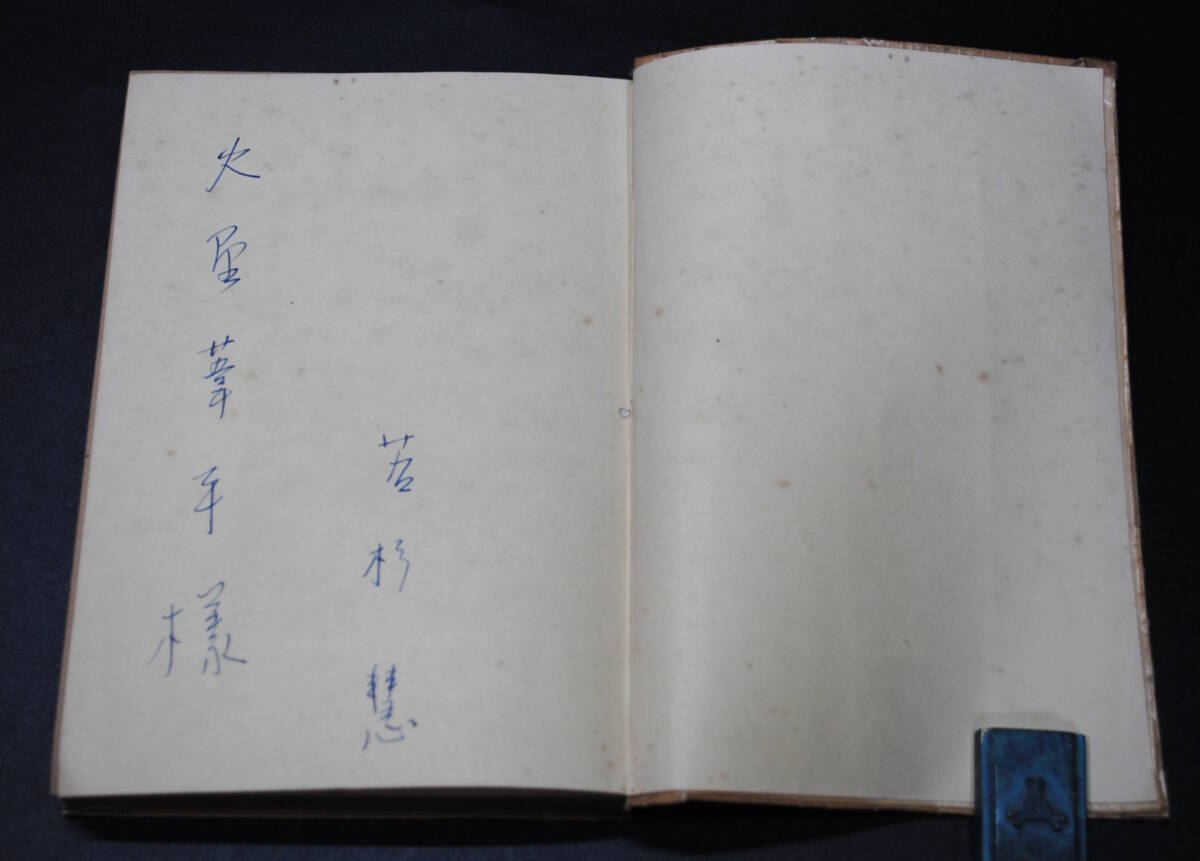 若杉慧
火野葦平様